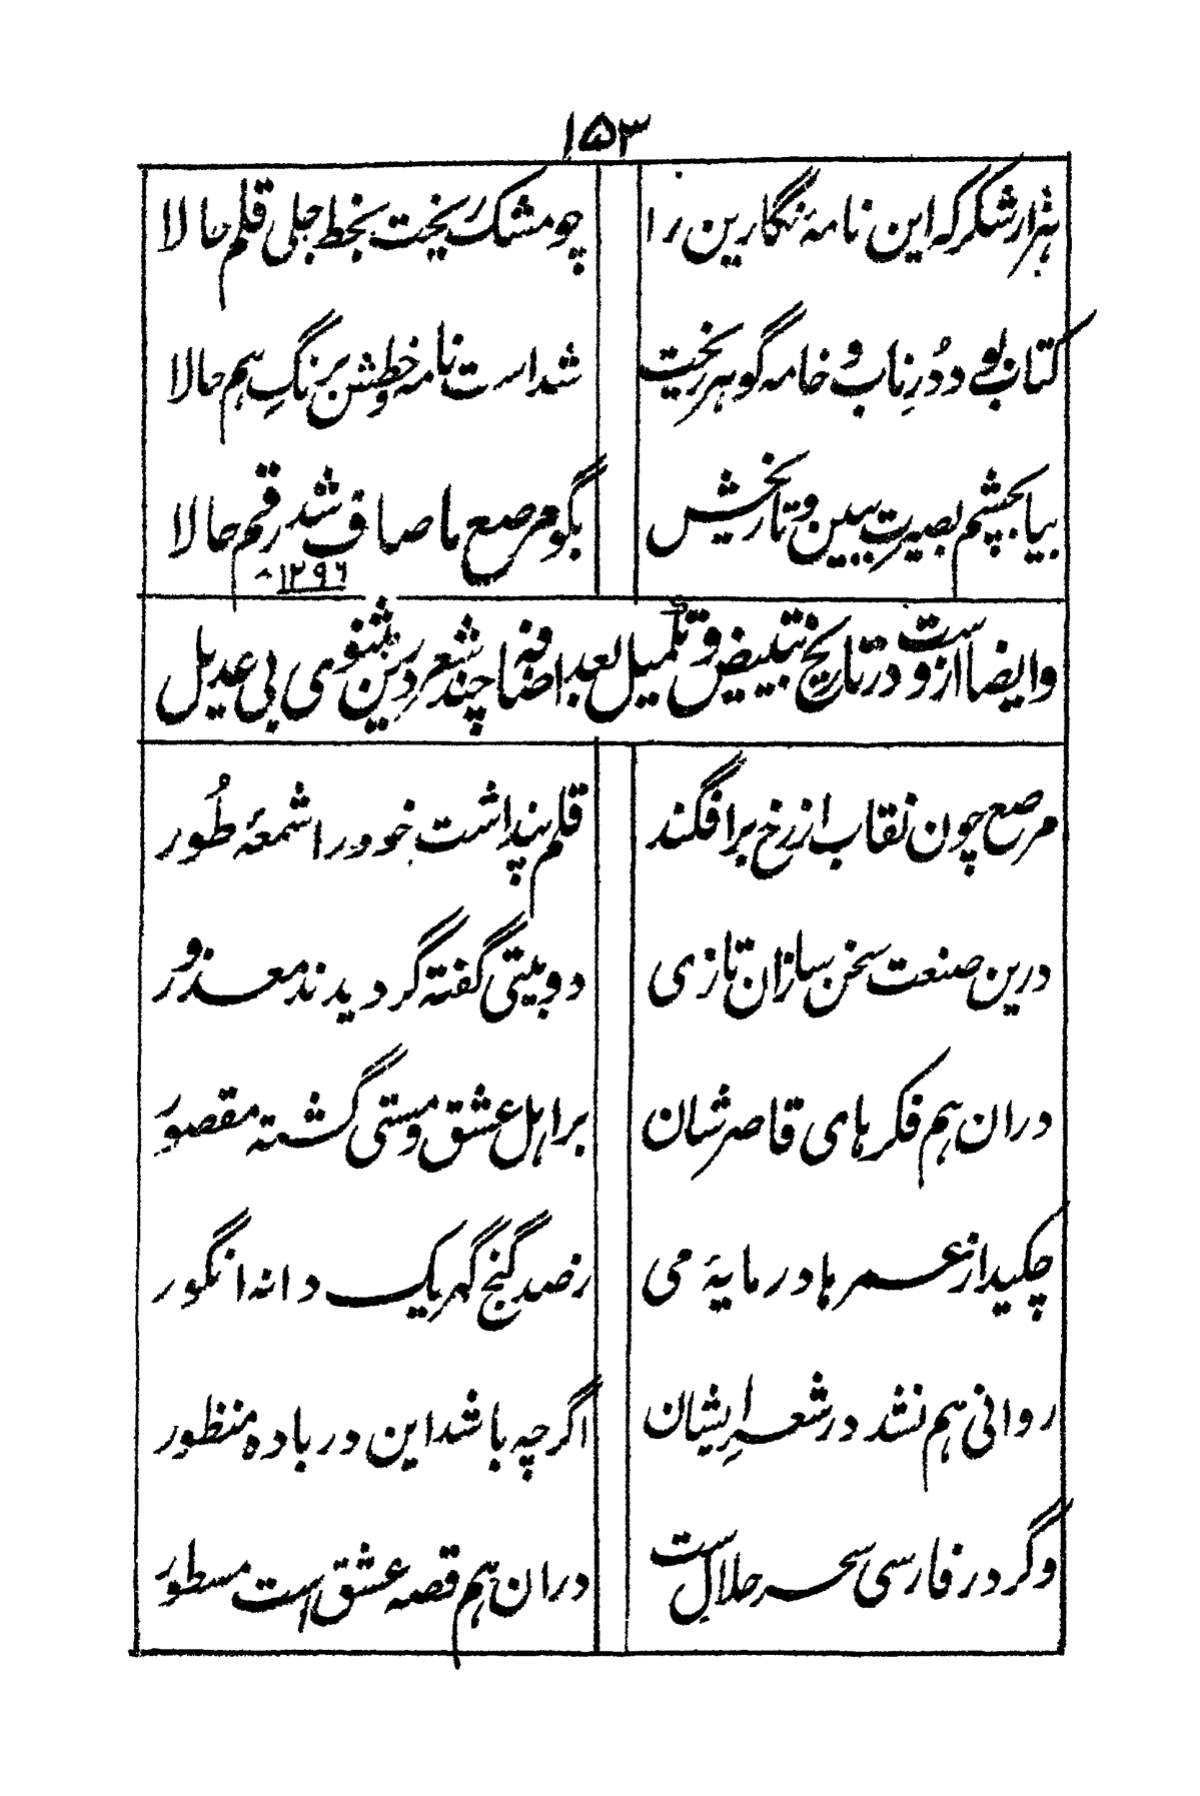 ۱۵۳
هزار شکر که این نامهٔ نگارین را
چو مشک ریخت بخط جلی قلم حالا
کتاب بوی دو دُرِ ناب و خامه گوهر ریخت
شداست نامه و خطش برنگِ هم حالا
بیا بچشم بصیرت ببین و تاریخش
بگو مرصع ما صاف شد رقم حالا
۱۲۹۶
وایضا ازوست در تاریخ تبییض و تکمیل بعد اضافهٔ چند شعر درین مثنوی بی عدیل
مرصع چون نقاب از رخ برافگند
قلم پنداشت خود را شمعهٔ طُور
درین صنعت سخن سازان تازی
دو بیتی گفته گردیدند معذور
دران هم فکرهای قاصر شان
بر اهل عشق و مستی گشته مقصور
چکید از عمرها در مایهٔ می
ز صد گنج گهر یک دانه انگور
روانی هم نشد در شعرِ ایشان
اگرچه باشد این در باده منظور
وگر در فارسی سحر حلال ست
دران هم قصه عشق است مسطور